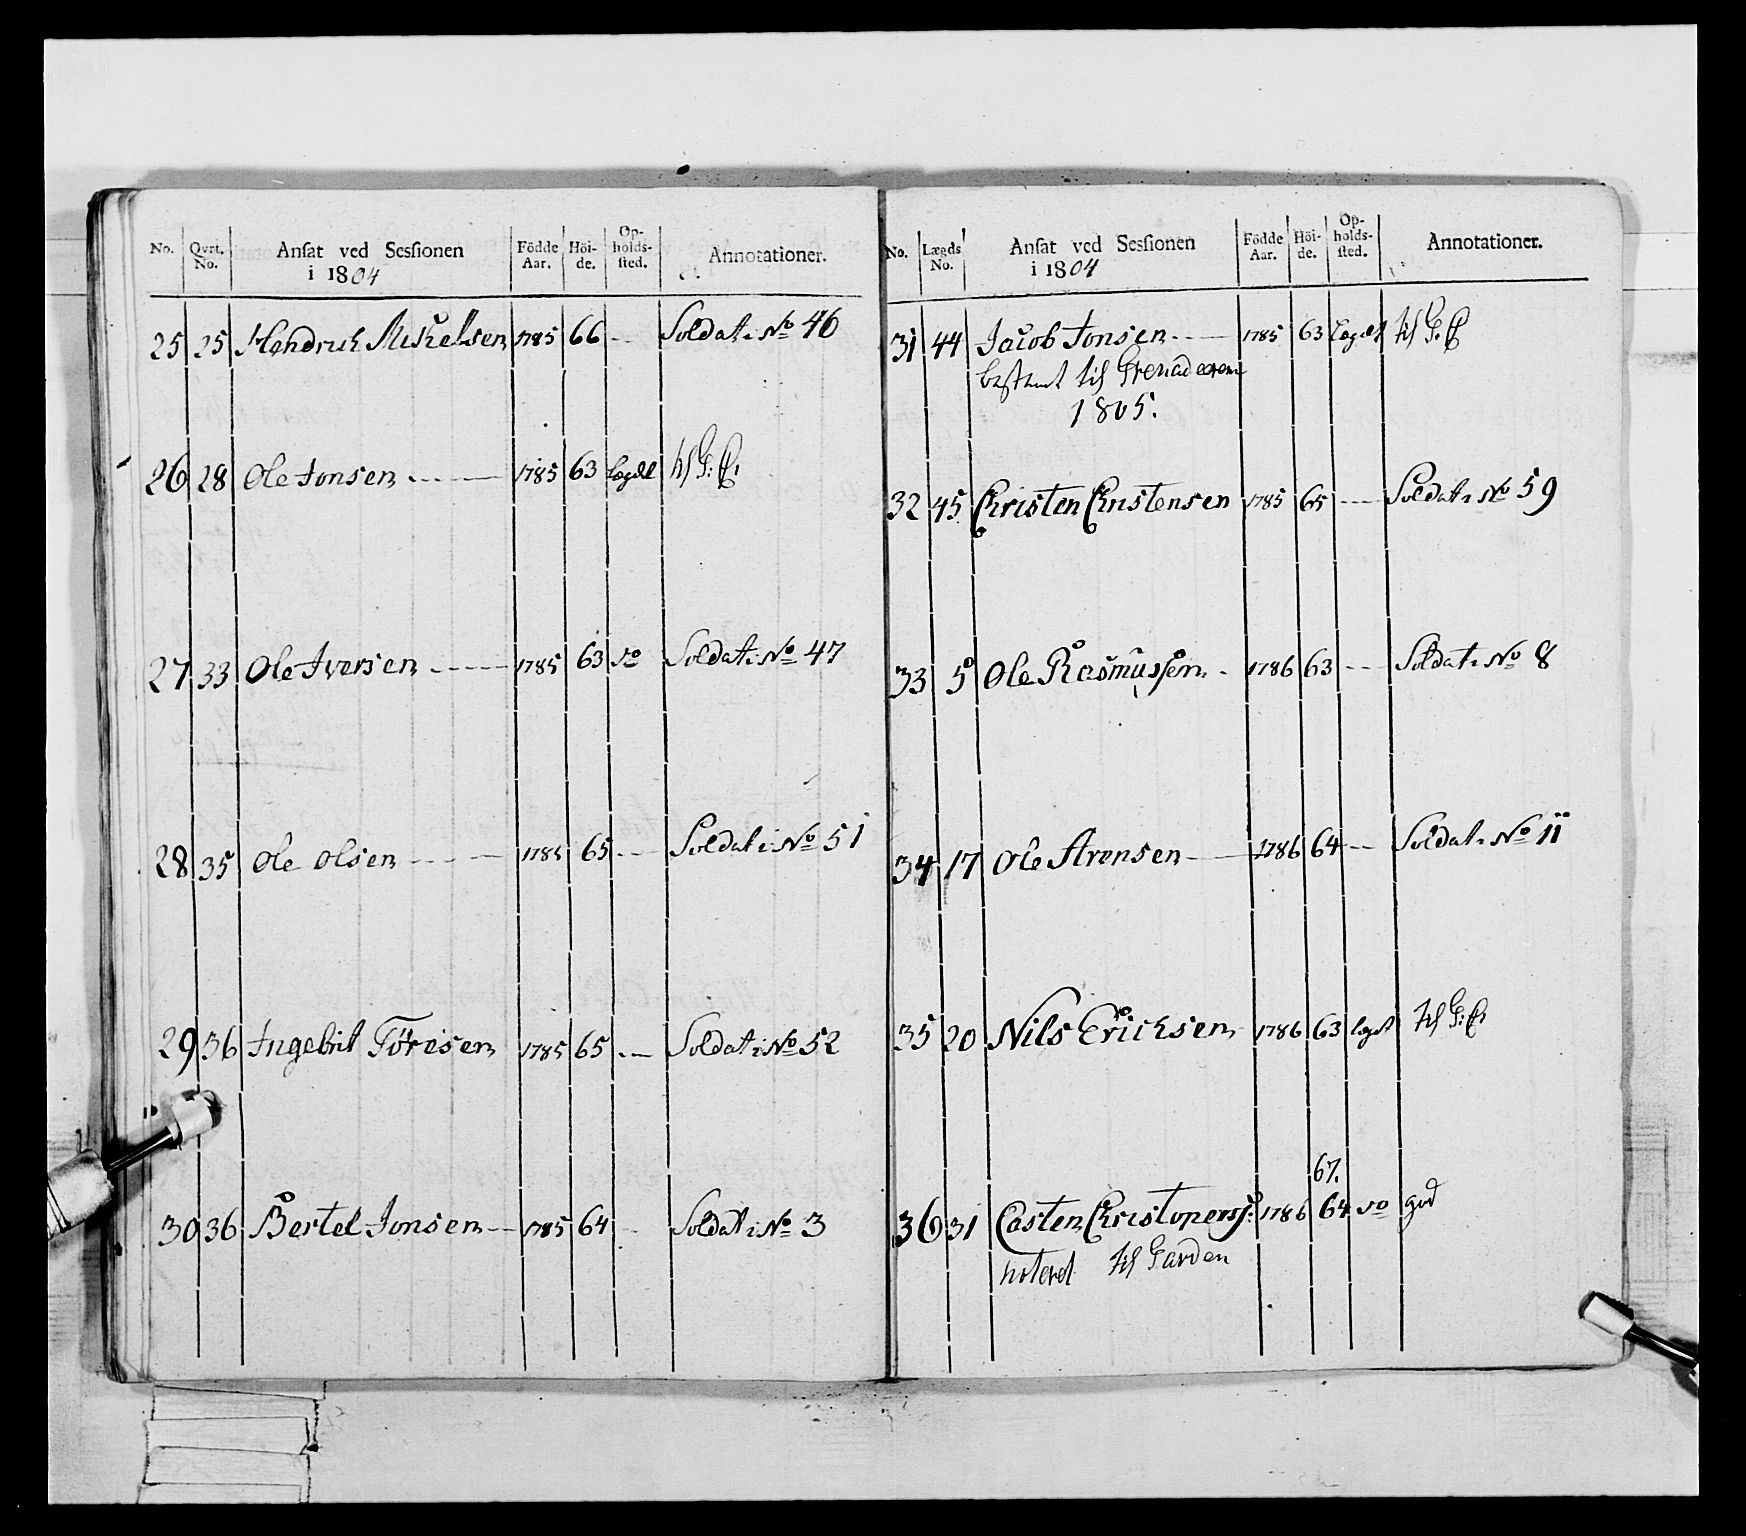 No. Qvrt. No. Ansat ved Sessionen i 1804 Födde Aar. Höide. Opholdssted. Annotationer.
25 25 Hendrich Mikelsen 1785 66 — Soldat i No 46
26 28 Ole Jonsen 1785 63 Lægdet til G: C:
27 33 Ole Iversen 1785 63 do Soldat i No 47
28 35 Ole Olsen 1785 65 — Soldat i No 51
29 36 Ingebrit Töresen 1785 65 — Soldat i No 52
30 36 Bertel Jonsen 1785 64 — Soldat i No 3
No. Lægds No. Ansat ved Sessionen i 1804 Födde Aar. Höide. Opholdssted. Annotationer.
31 44 Jacob Jonsen 1785 63 Lægdet til G: C
bestemt til Grenadererne
1805.
32 45 Christen Christensen 1785 65 — Soldat i No 59
33 5 Ole Rasmussen 1786 63 — Soldat i No 8
34 17 Ole Arensen 1786 64 — Soldat i No 11
35 20 Nils Erichsen 1786 63 lægdet til G: C:
67.
36 31 Casten Christopers: 1786 64 do god
noteret til Garden